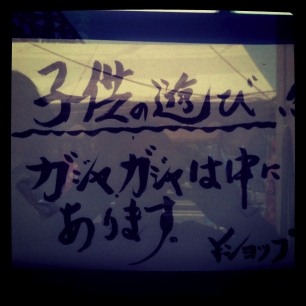 子供の遊び
ガジャガジャは中に
あります.
¥ショップ